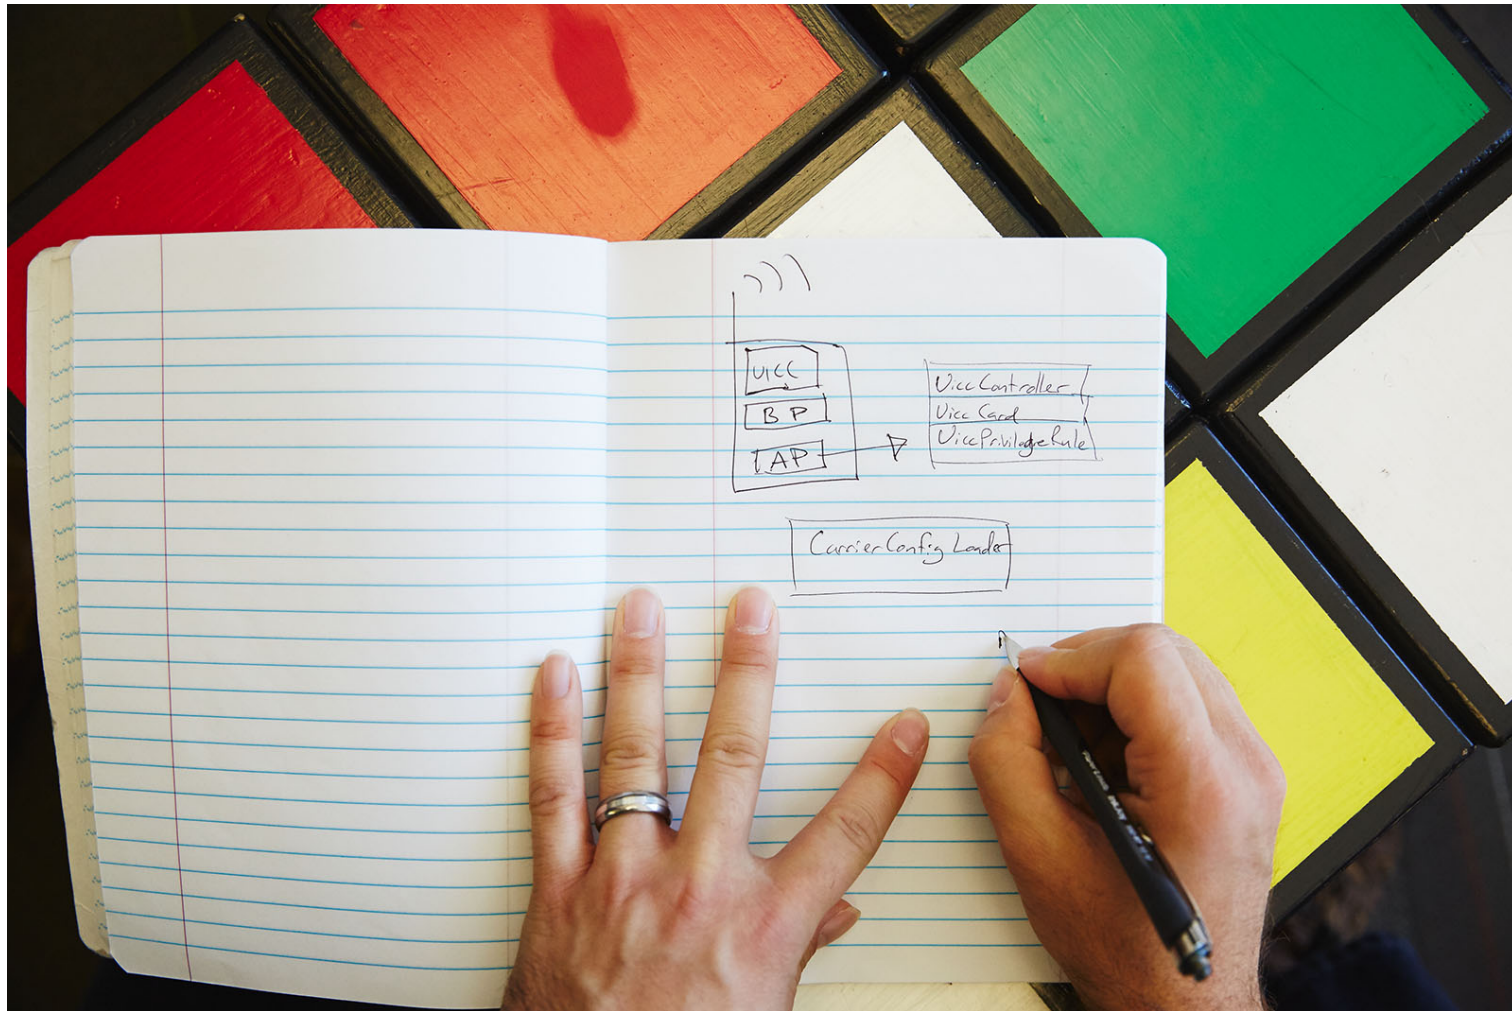 UICC
BP
AP
UiccController
Uicc Card
UiccPrivilegeRule
CarrierConfig Loader